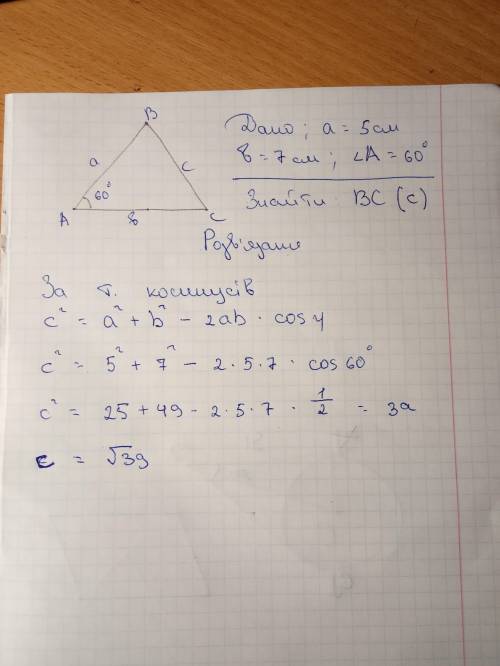 B
a
c
60°
A
в
C
Дано; a = 5 см
в = 7 см; ∠A = 60°
Знайти BC (c)
Розв'язання
За т. косинусів
c² = a² + b² - 2ab · cos γ
c² = 5² + 7² - 2·5·7 · cos 60°
c² = 25 + 49 - 2·5·7 · 1/2 = 39
c = √39